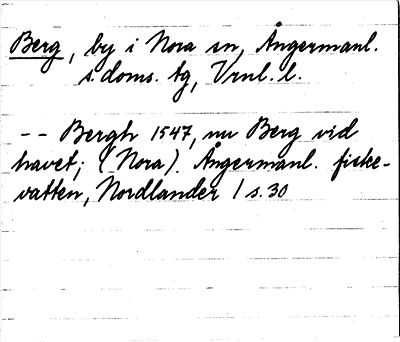 Berg, by i Nora sn, Ångermanl.
s. doms. tg, Vrnl. l.
-- Bergh 1547, nu Berg vid
havet; (Nora). Ångermanl. fiske-
vatten, Nordlander / s. 30